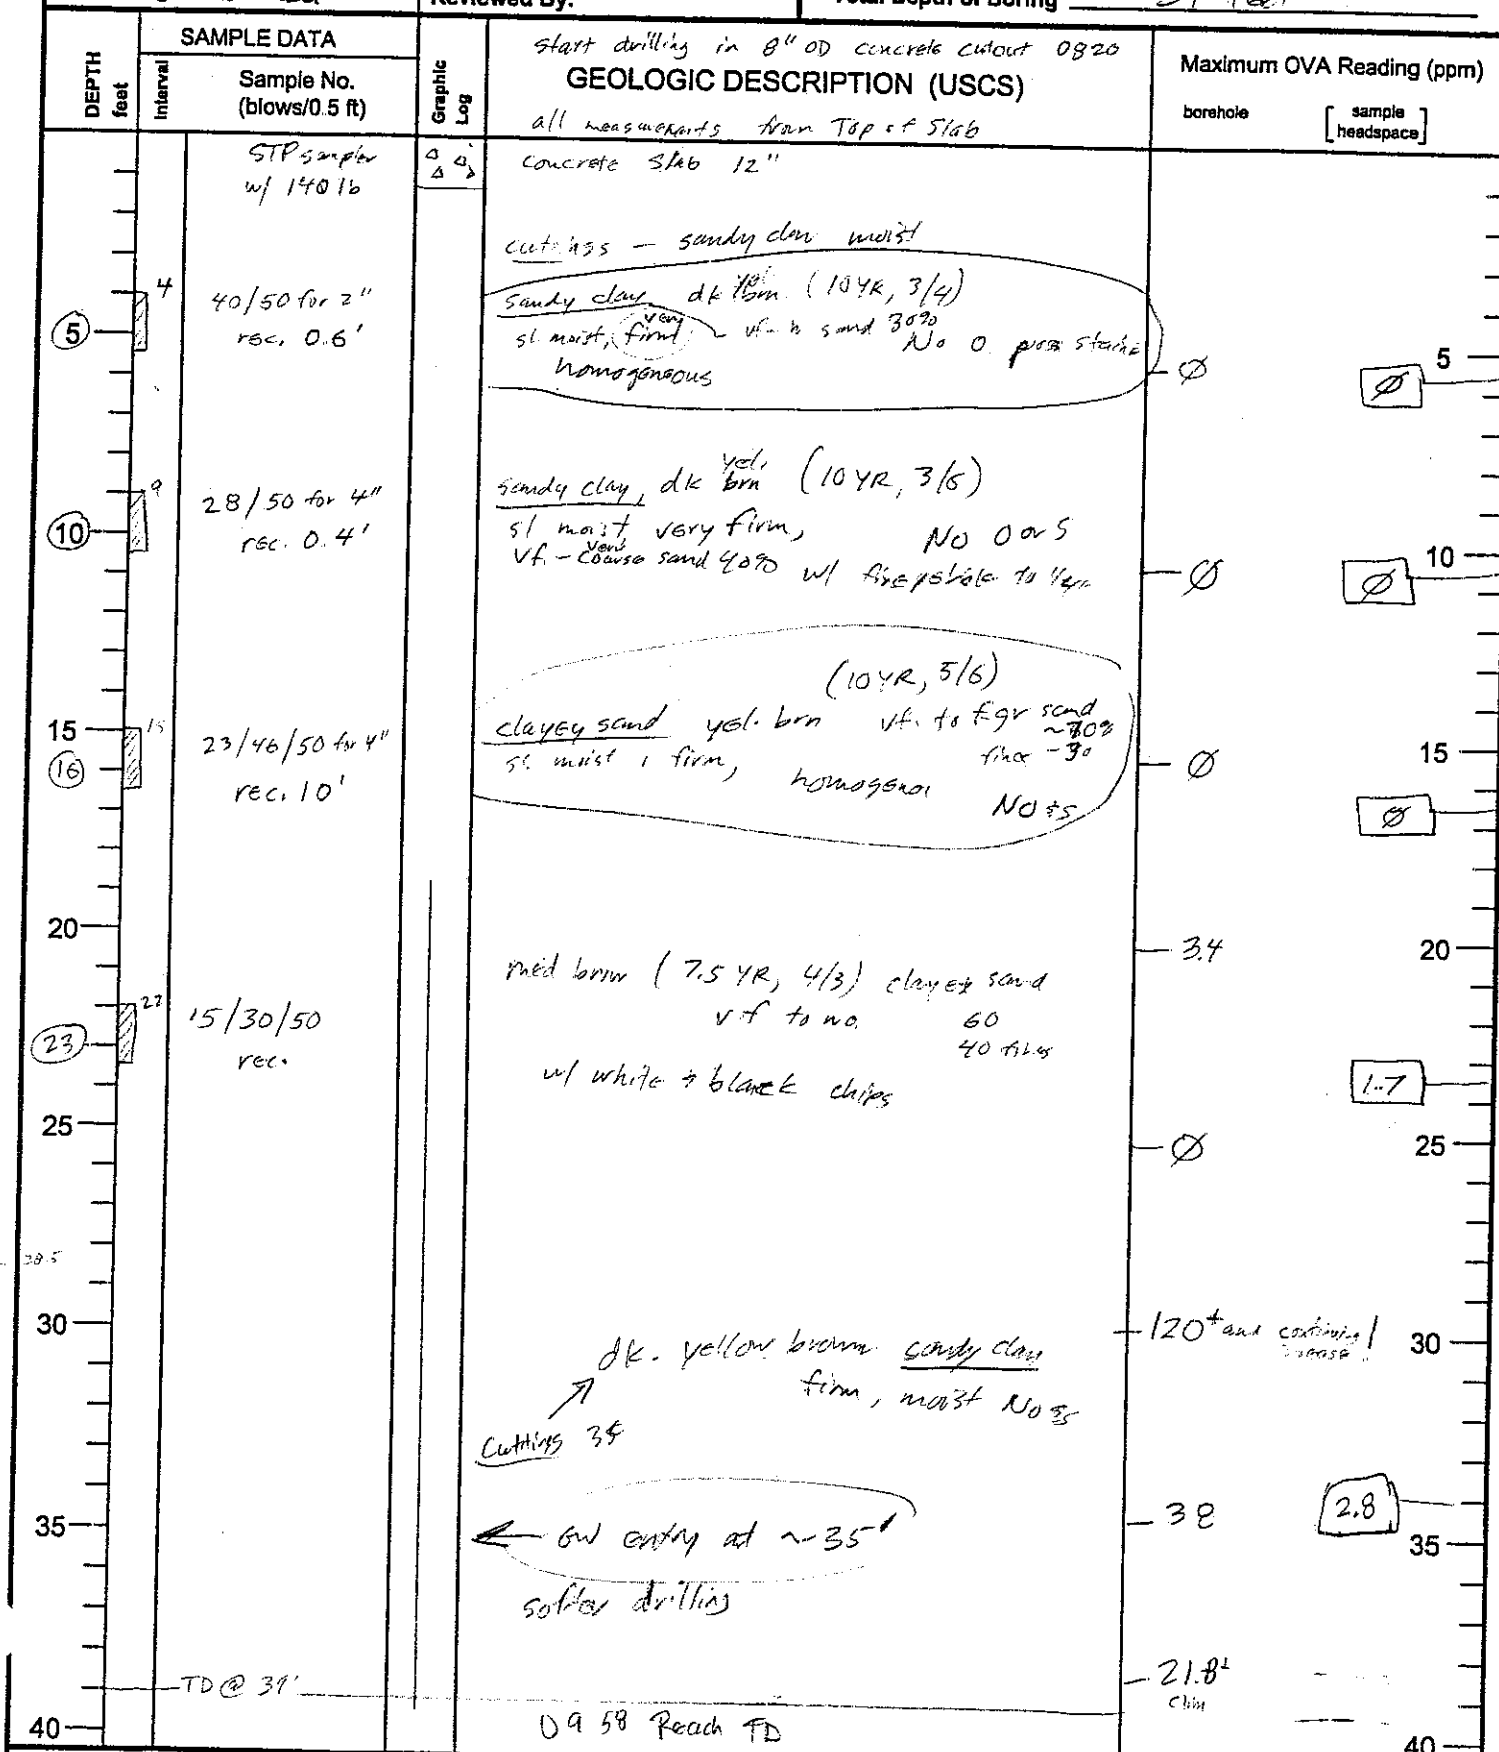 Reviewed By:
Total Depth of Boring
SAMPLE DATA
DEPTH
feet
Interval
Sample No.
(blows/0.5 ft)
Graphic
Log
start drilling in 8" OD concrete cutout 0820
GEOLOGIC DESCRIPTION (USCS)
all measurements from Top of Slab
Maximum OVA Reading (ppm)
borehole
[sample
headspace]
STP sampler
w/ 140 lb
concrete Slab 12"
cuttings - sandy clay moist
4
40/50 for 2"
rec. 0.6'
5
sandy clay, dk yel brn (10YR, 3/4)
sl moist, very firm, sand 30%
No O
homogeneous
Ø
5
Ø
9
28/50 for 4"
rec. 0.4'
10
sandy clay, dk yel. brn (10YR, 3/6)
sl moist, very firm, No O or S
vf. - very coarse sand 40% w/
Ø
10
Ø
15
15
16
23/46/50 for 4"
rec. 10'
(10YR, 5/6)
clayey sand yel. brn vf. to fgr sand
sl. moist, firm,
Ø
15
Ø
20
med brn (7.5 YR, 4/3) clayey sand
3.4
20
22
15/30/50
23
rec.
vf to 60
40 fines
w/ white + blanck chips
1.7
25
Ø
25
28.5
30
120+ and continuing
30
dk. yellow brown sandy clay
firm, moist
Cuttings
35
GW entry at ~35'
38
2.8
35
softer drilling
TD @
21.8
40
0958 Reach TD
40